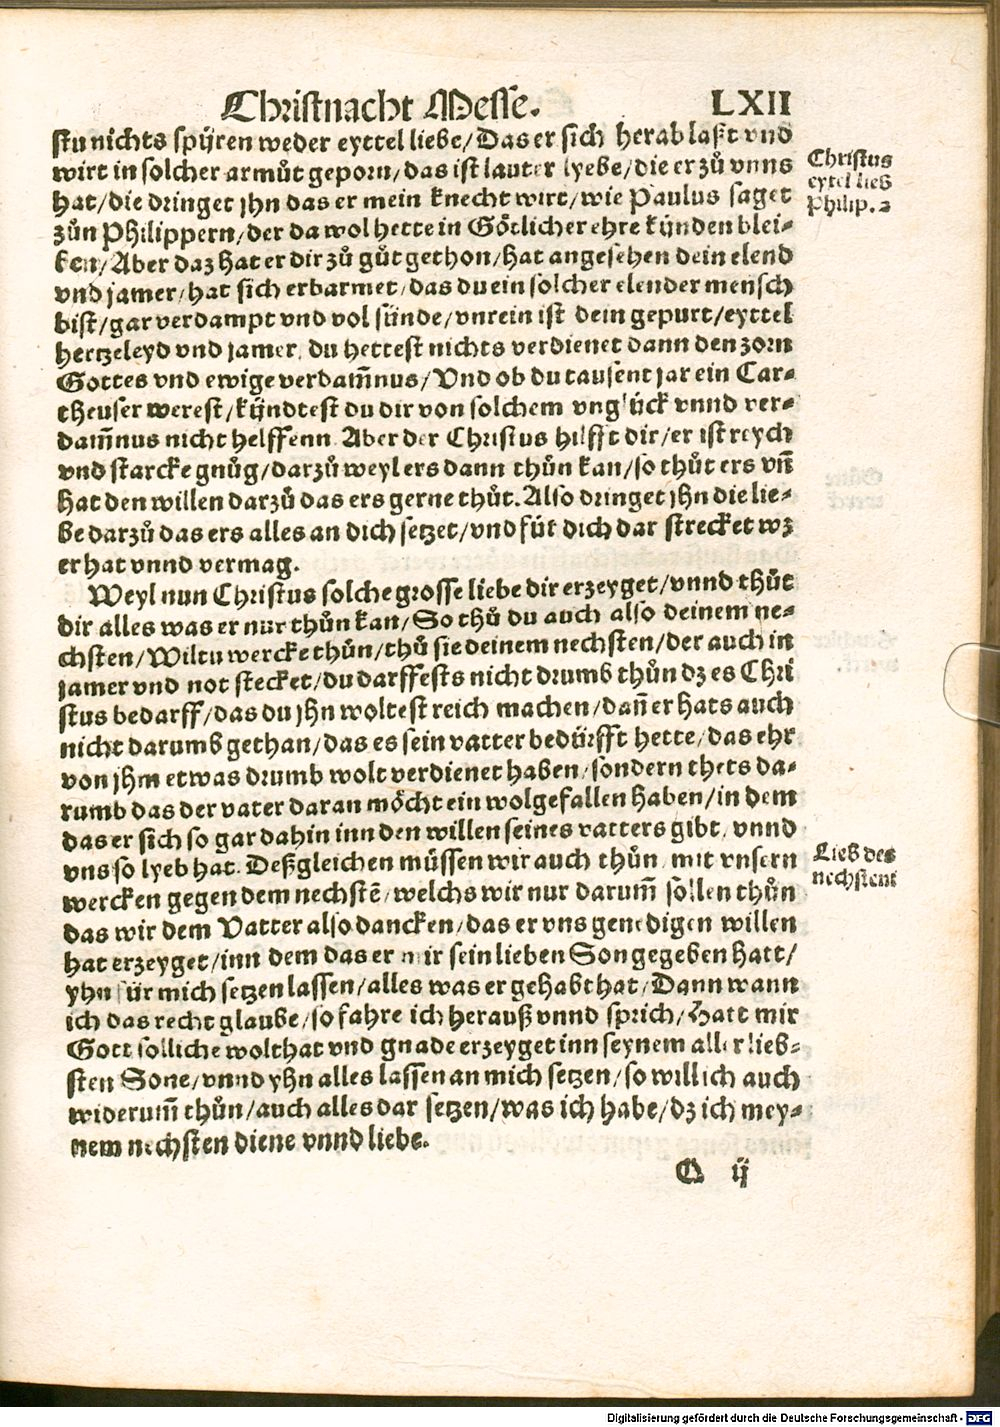 Christnacht Messe. LXII
stu nichts spÿren weder eyttel liebe/Das er sich herab laßt vnd
wirt in solcher armůt geporn/das ist lauter lyebe/die er zů vnns
hat/die dringet jhn das er mein knecht wirt/wie Paulus saget
zůn Philippern/der da wol hette in Götlicher ehre kÿnden blei-
ben/Aber daz hat er dir zů gůt gethon/hat angesehen dein elend
vnd jamer/hat sich erbarmet/das du ein solcher elender mensch
bist/gar verdampt vnd vol sünde/vnrein ist dein gepurt/eyttel
hertzeleyd vnd jamer/du hettest nichts verdienet dann den zorn
Gottes vnd ewige verdam̃nus/Vnd ob du tausent jar ein Car-
theuser werest/kÿndtest du dir von solchem vnglück vnnd ver-
dam̃nus nicht helffenn. Aber der Christus hilfft dir/er ist reych
vnd starcke gnůg/darzů weyl ers dann thůn kan/so thůt ers vñ
hat den willen darzů das ers gerne thůt. Also dringet jhn die lie-
be darzů das ers alles an dich setzet/vnd für dich dar strecket wz
er hat vnnd vermag.
Weyl nun Christus solche grosse liebe dir erzeyget/vnnd thůt
dir alles was er nur thůn kan/So thů du auch also deinem ne-
chsten/Wiltu wercke thůn/thů sie deinem nechsten/der auch in
jamer vnd not stecket/du darffests nicht drumb thůn dz es Chri
stus bedarff/das du jhn woltest reich machen/dañ er hats auch
nicht darumb gethan/das es sein vatter bedürfft hette/das ehr
von jhm etwas drumb wolt verdienet haben/sondern thets da-
rumb das der vater daran möcht ein wolgefallen haben/in dem
das er sich so gar dahin inn den willen seines vatters gibt, vnnd
vns so lyeb hat. Deßgleichen müssen wir auch thůn mit vnsern
wercken gegen dem nechstē/welchs wir nur darum̃ sollen thůn
das wir dem Vatter also dancken/das er vns genedigen willen
hat erzeyget/inn dem das er mir sein lieben Son gegeben hatt/
yhn für mich setzen lassen/alles was er gehabt hat/Dann wann
ich das recht glaube/so fahre ich herauß vnnd sprich/Hatt mir
Gott solliche wolthat vnd gnade erzeyget inn seynem aller lieb-
sten Sone/vnnd yhn alles lassen an mich setzen/so will ich auch
widerum̃ thůn/auch alles dar setzen/was ich habe/dz ich mey-
nem nechsten diene vnnd liebe.
Q ij
Christus
eytel lieb
Philip. 2
Lieb des
nechstens
Digitalisierung gefördert durch die Deutsche Forschungsgemeinschaft - DFG